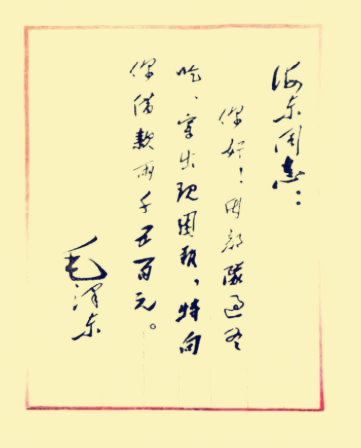 海东同志：
你好！因部隊过冬
吃、穿出现困难，特向
你借款兩千五百元。
毛澤东